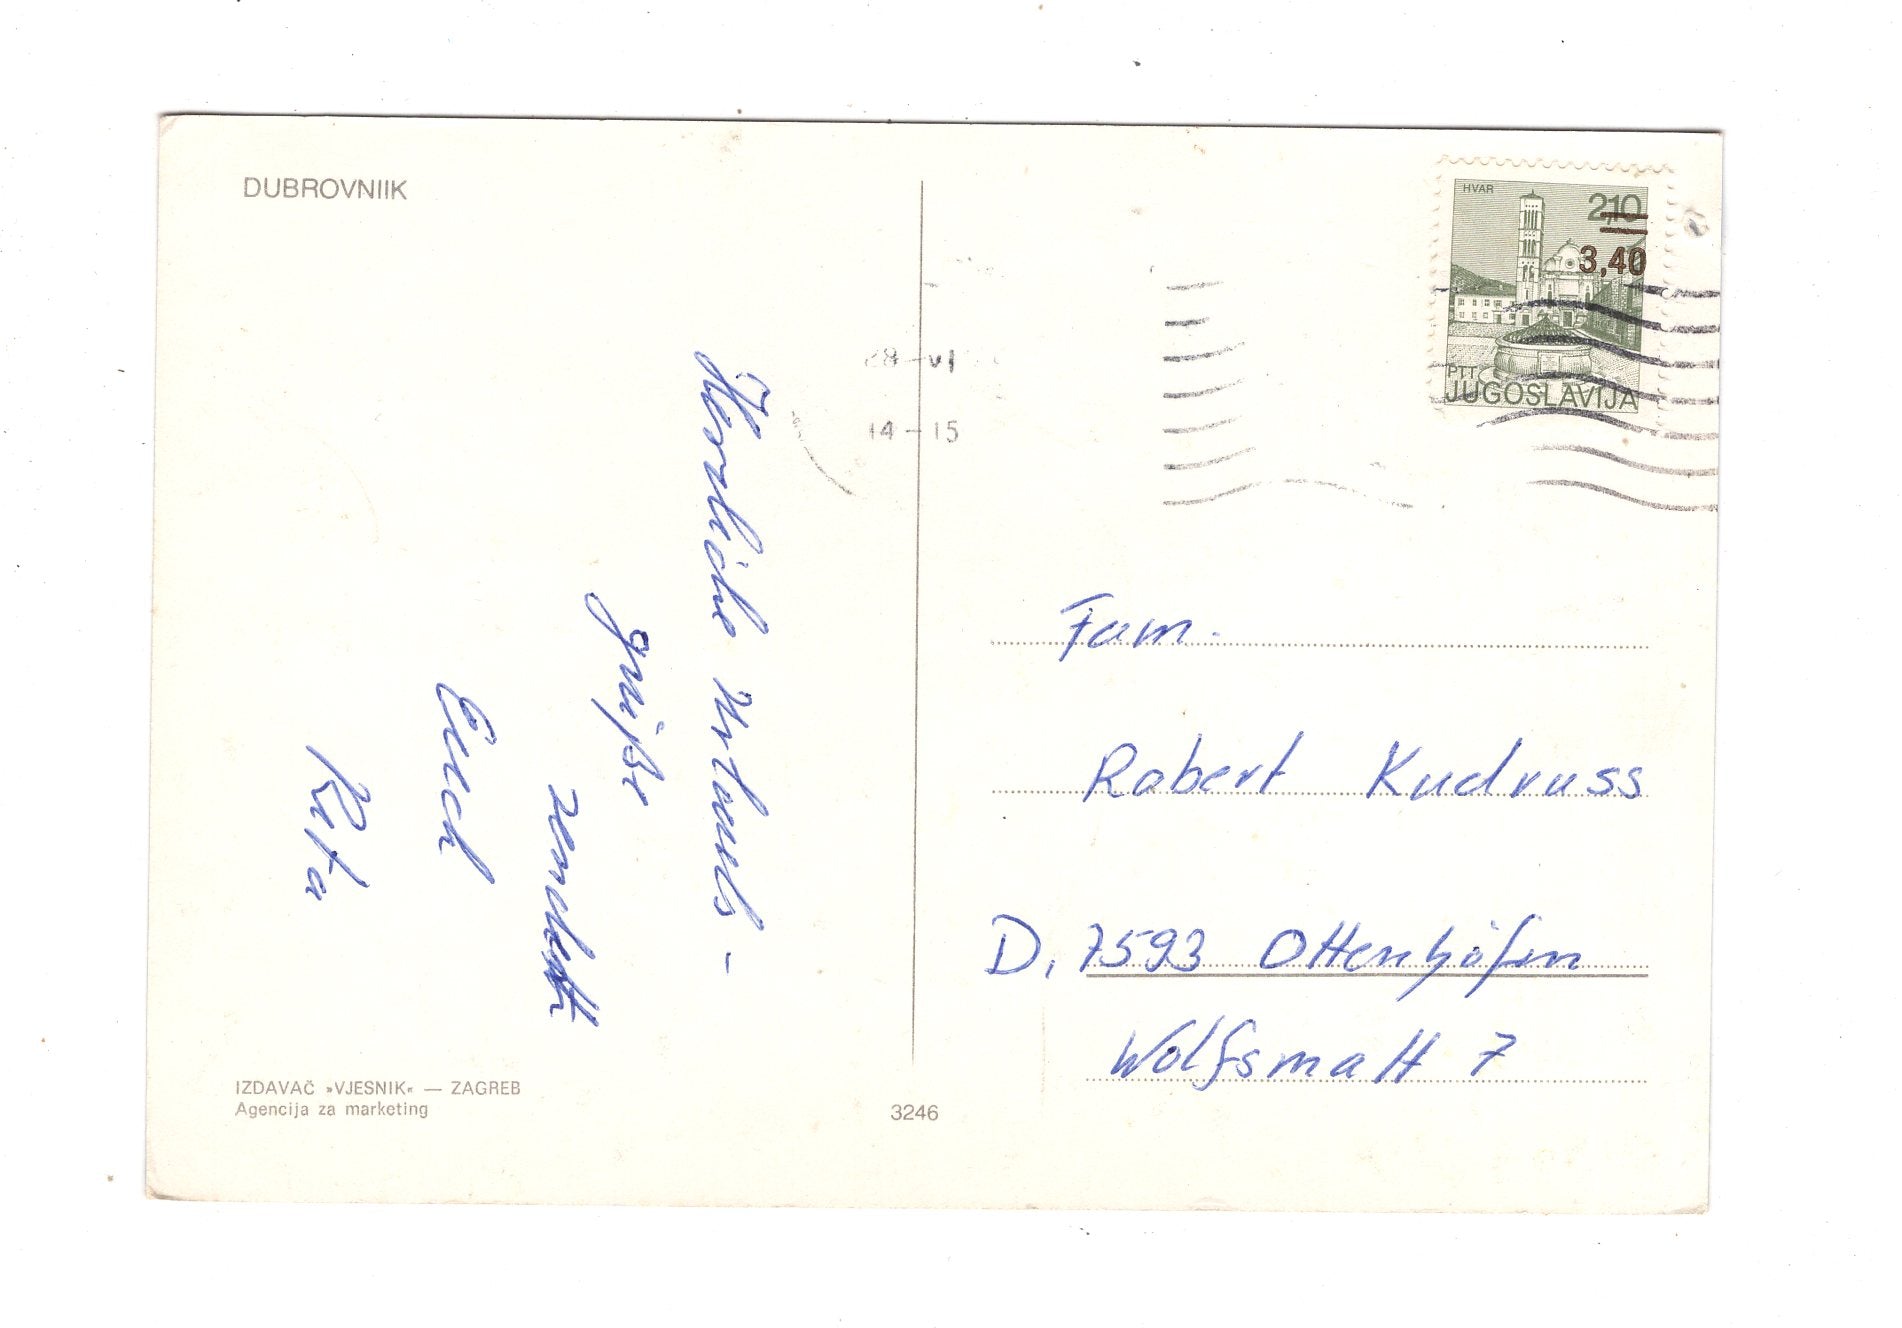 DUBROVNIIK
HVAR
2,10
3,40
PTT
JUGOSLAVIJA
28-VI
14-15
Herzliche Urlaubs-
grüße
sendet
Euch
Rita
Fam.
Robert Kudruss
D, 7593 Ottenhöfen
Wolfsmatt 7
IZDAVAČ »VJESNIK« — ZAGREB
Agencija za marketing
3246